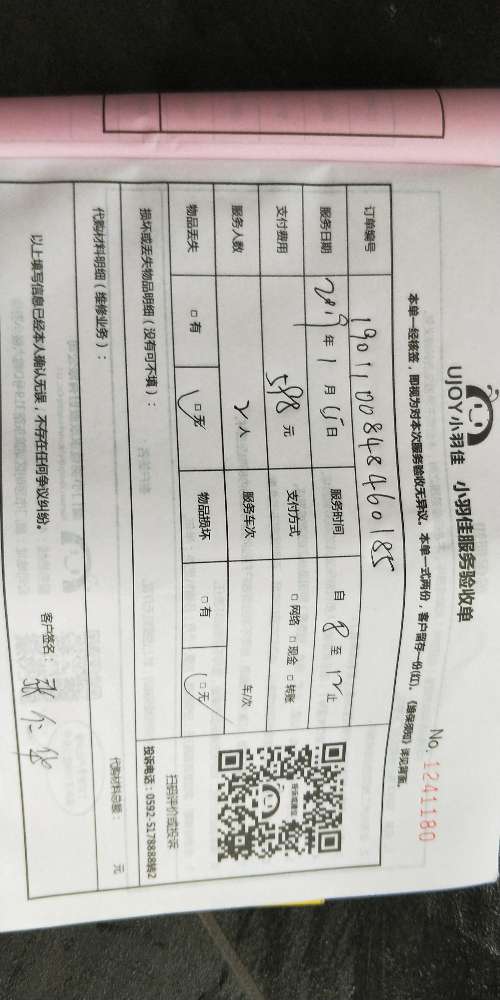 UJOY小羽佳 小羽佳服务验收单
No. 1241180
本单一经核签，即视为对本次服务验收无异议。本单一式两份，客户留存一份(红)。《维保须知》详见背面。
订单编号 1901100848460185
服务日期 2019年1月15日 服务时间 自8至12止
支付费用 598元 支付方式 □网络 □现金 □转账
服务人数 2人 服务车次 车/次
物品丢失 □有 □无 物品损坏 □有 □无
扫码评价或投诉
投诉电话：0592-5178888转2
损坏或丢失物品明细（没有可不填）：
代购材料明细（维修业务）： 代购材料总额： 元
以上填写信息已经本人确认无误，不存在任何争议纠纷。
客户签名：张